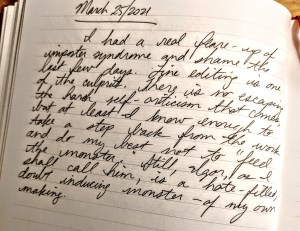 March 25/2021
I had a real flare-up of
imposter syndrome and shame the
last few days. Fine editing is one
of the culprits. There is no escaping
the harsh self-criticism that comes
but at least I know enough to
take a step back from the work
and do my best not to feed
the monster. Still, as I
shall call him, is a hate-filled,
doubt inducing monster - of my own
making.